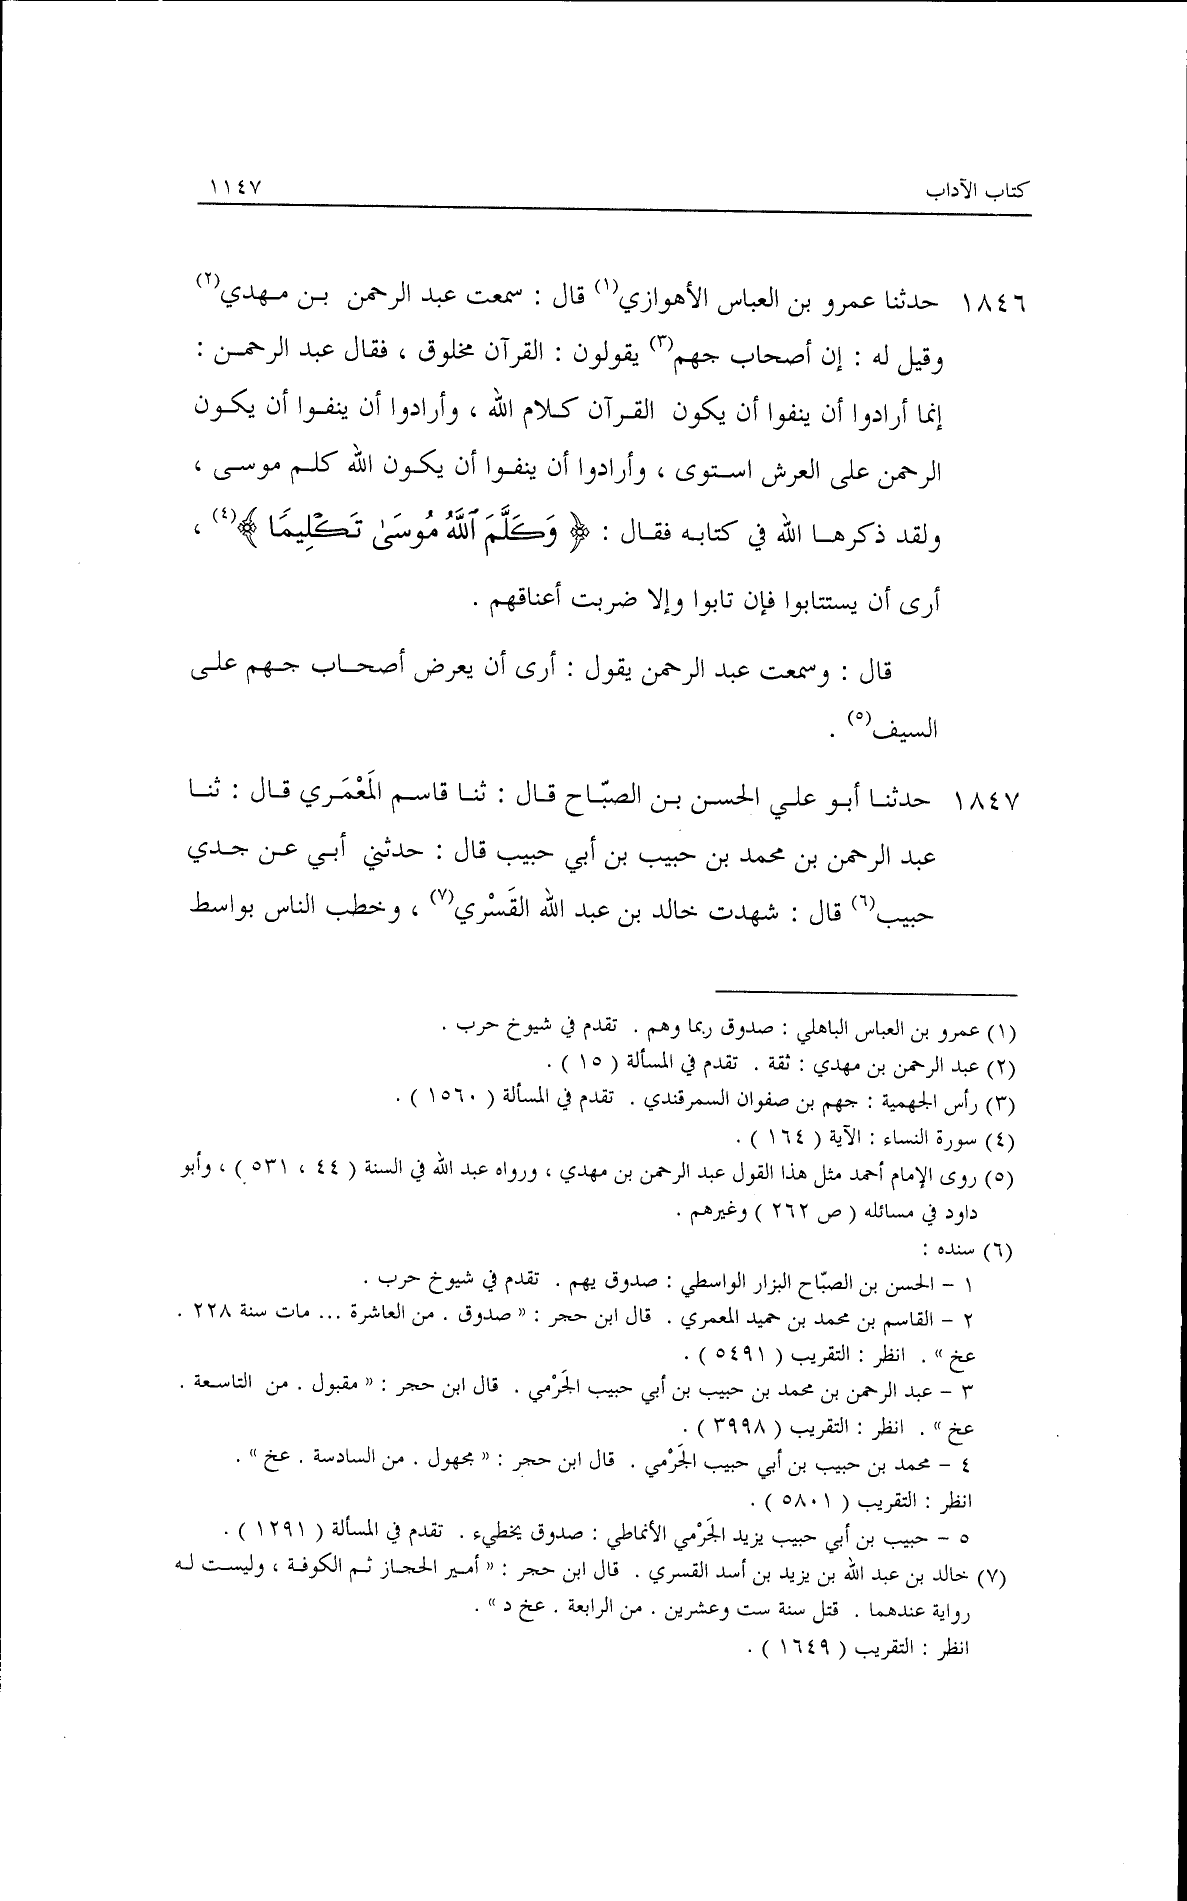 كتاب الآداب ١١٤٧
١٨٤٦ حدثنا عمرو بن العباس الأهوازي(١) قال : سمعت عبد الرحمن بن مهدي(٢)
وقيل له : إن أصحاب جهم(٣) يقولون : القرآن مخلوق ، فقال عبد الرحمن :
إنما أرادوا أن ينفوا أن يكون القرآن كلام الله ، وأرادوا أن ينفوا أن يكون
الرحمن على العرش استوى ، وأرادوا أن ينفوا أن يكون الله كلم موسى ،
ولقد ذكرها الله في كتابه فقال : ﴿ وَكَلَّمَ ٱللَّهُ مُوسَىٰ تَكْلِيمًا ﴾(٤) ،
أرى أن يستتابوا فإن تابوا وإلا ضربت أعناقهم .
قال : وسمعت عبد الرحمن يقول : أرى أن يعرض أصحاب جهم على
السيف(٥) .
١٨٤٧ حدثنا أبو علي الحسن بن الصبّاح قال : ثنا قاسم المَعْمَري قال : ثنا
عبد الرحمن بن محمد بن حبيب بن أبي حبيب قال : حدثني أبي عن جدي
حبيب(٦) قال : شهدت خالد بن عبد الله القَسْري(٧) ، وخطب الناس بواسط
(١) عمرو بن العباس الباهلي : صدوق ربما وهم . تقدم في شيوخ حرب .
(٢) عبد الرحمن بن مهدي : ثقة . تقدم في المسألة ( ١٥ ) .
(٣) رأس الجهمية : جهم بن صفوان السمرقندي . تقدم في المسألة ( ١٥٦٠ ) .
(٤) سورة النساء : الآية ( ١٦٤ ) .
(٥) روى الإمام أحمد مثل هذا القول عبد الرحمن بن مهدي ، ورواه عبد الله في السنة ( ٤٤ ، ٥٣١ ) ، وأبو
داود في مسائله ( ص ٢٦٢ ) وغيرهم .
(٦) سنده :
١ - الحسن بن الصبّاح البزار الواسطي : صدوق يهم . تقدم في شيوخ حرب .
٢ - القاسم بن محمد بن حميد المعمري . قال ابن حجر : « صدوق . من العاشرة ... مات سنة ٢٢٨ .
عخ » . انظر : التقريب ( ٥٤٩١ ) .
٣ - عبد الرحمن بن محمد بن حبيب بن أبي حبيب الجَرْمي . قال ابن حجر : « مقبول . من التاسعة .
عخ » . انظر : التقريب ( ٣٩٩٨ ) .
٤ - محمد بن حبيب بن أبي حبيب الجَرْمي . قال ابن حجر : « مجهول . من السادسة . عخ » .
انظر : التقريب ( ٥٨٠١ ) .
٥ - حبيب بن أبي حبيب يزيد الجَرْمي الأنماطي : صدوق يخطيء . تقدم في المسألة ( ١٢٩١ ) .
(٧) خالد بن عبد الله بن يزيد بن أسد القسري . قال ابن حجر : « أمير الحجاز ثم الكوفة ، وليست له
رواية عندهما . قتل سنة ست وعشرين . من الرابعة . عخ د » .
انظر : التقريب ( ١٦٤٩ ) .